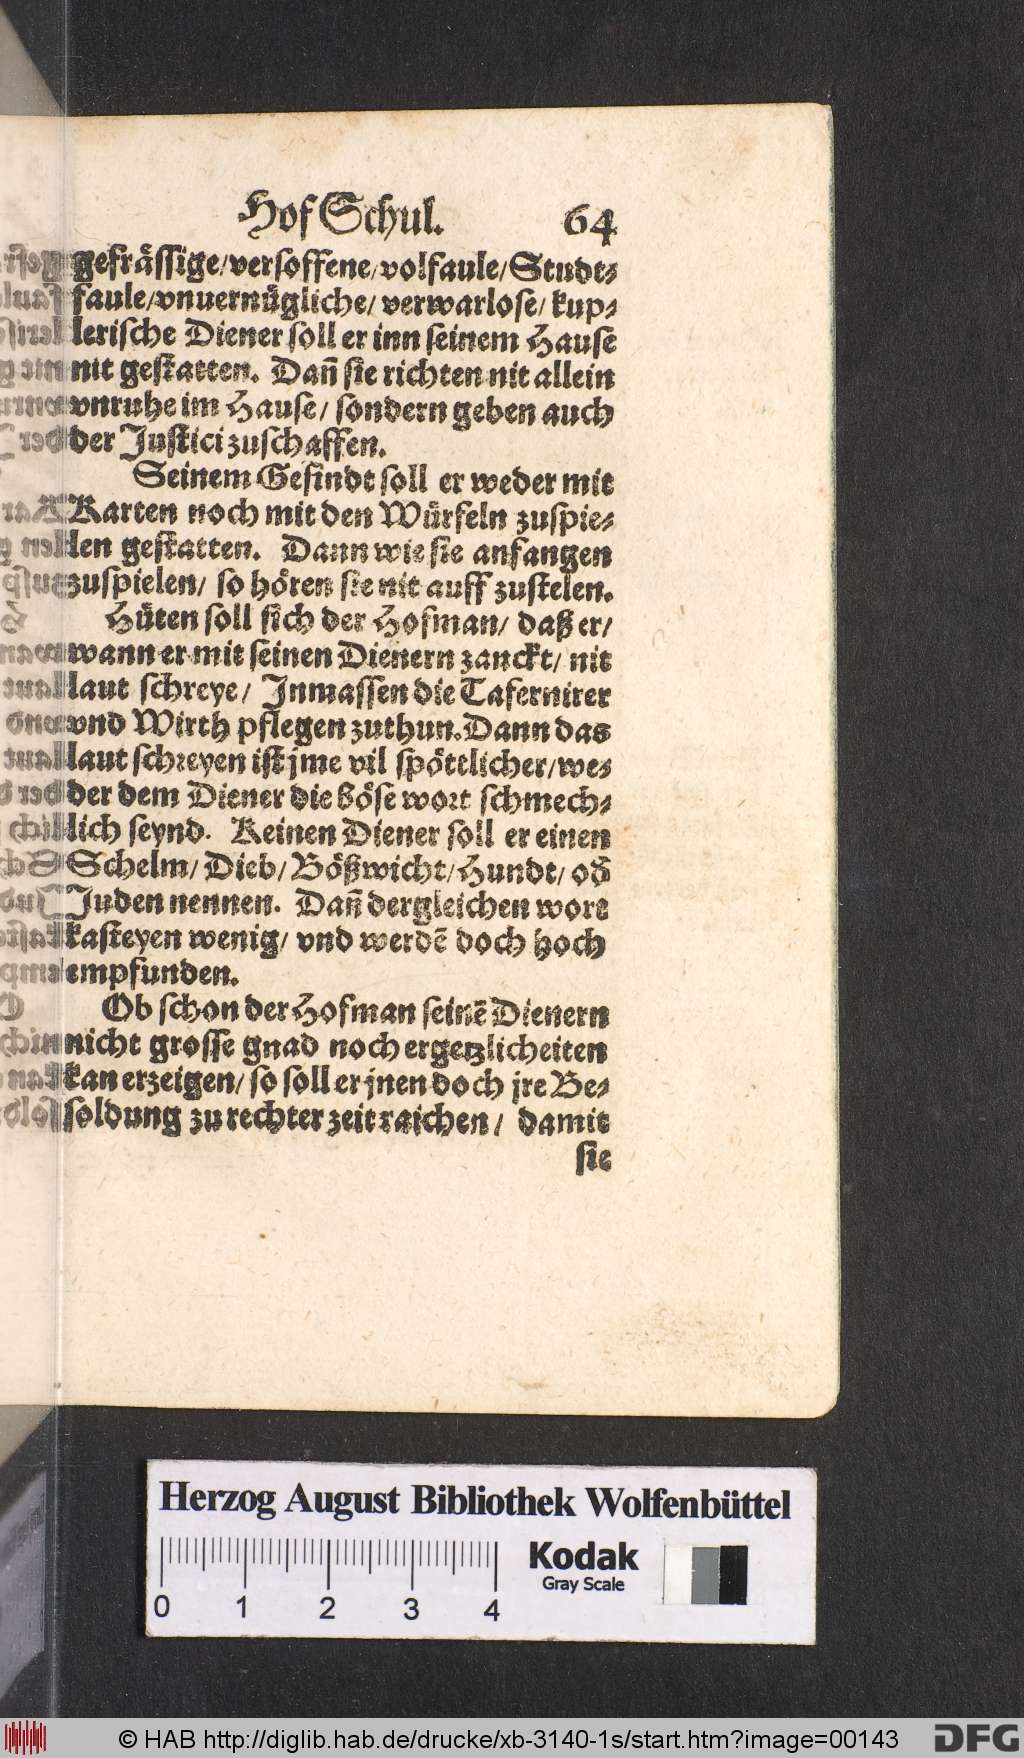 Hof Schul. 64
gefrässige/versoffene/volfaule/Studt⸗
faule/vnuernügliche/ verwarlose/ kup⸗
lerische Diener soll er inn seinem Hause
nit gestatten. Dañ sie richten nit allein
vnruhe im Hause/ sondern geben auch
der Justici zuschaffen.
Seinem Gesindt soll er weder mit
Karten noch mit den Würfeln zuspie⸗
len gestatten. Dann wie sie anfangen
zuspielen/ so hören sie nit auff zustelen.
Hüten soll sich der Hofman/ daß er/
wann er mit seinen Dienern zanckt/ nit
laut schreye/ Inmassen die Tafernirer
vnd Wirth pflegen zuthun. Dann das
laut schreyen ist jme vil spöttlicher/we⸗
der dem Diener die böse wort schmech⸗
lich seynd. Keinen Diener soll er einen
Schelm/ Dieb/ Bößwicht/ Hundt/ oð
Juden nennen. Dañ dergleichen wort
kasteyen wenig/ vnd werdē doch hoch
empfunden.
Ob schon der Hofman seinē Dienern
nicht grosse gnad noch ergetzlicheiten
kan erzeigen/ so soll er jnen doch jre Be⸗
soldung zu rechter zeit raichen/ damit
sie
Herzog August Bibliothek Wolfenbüttel
Kodak
Gray Scale
0 1 2 3 4
© HAB http://diglib.hab.de/drucke/xb-3140-1s/start.htm?image=00143
DFG